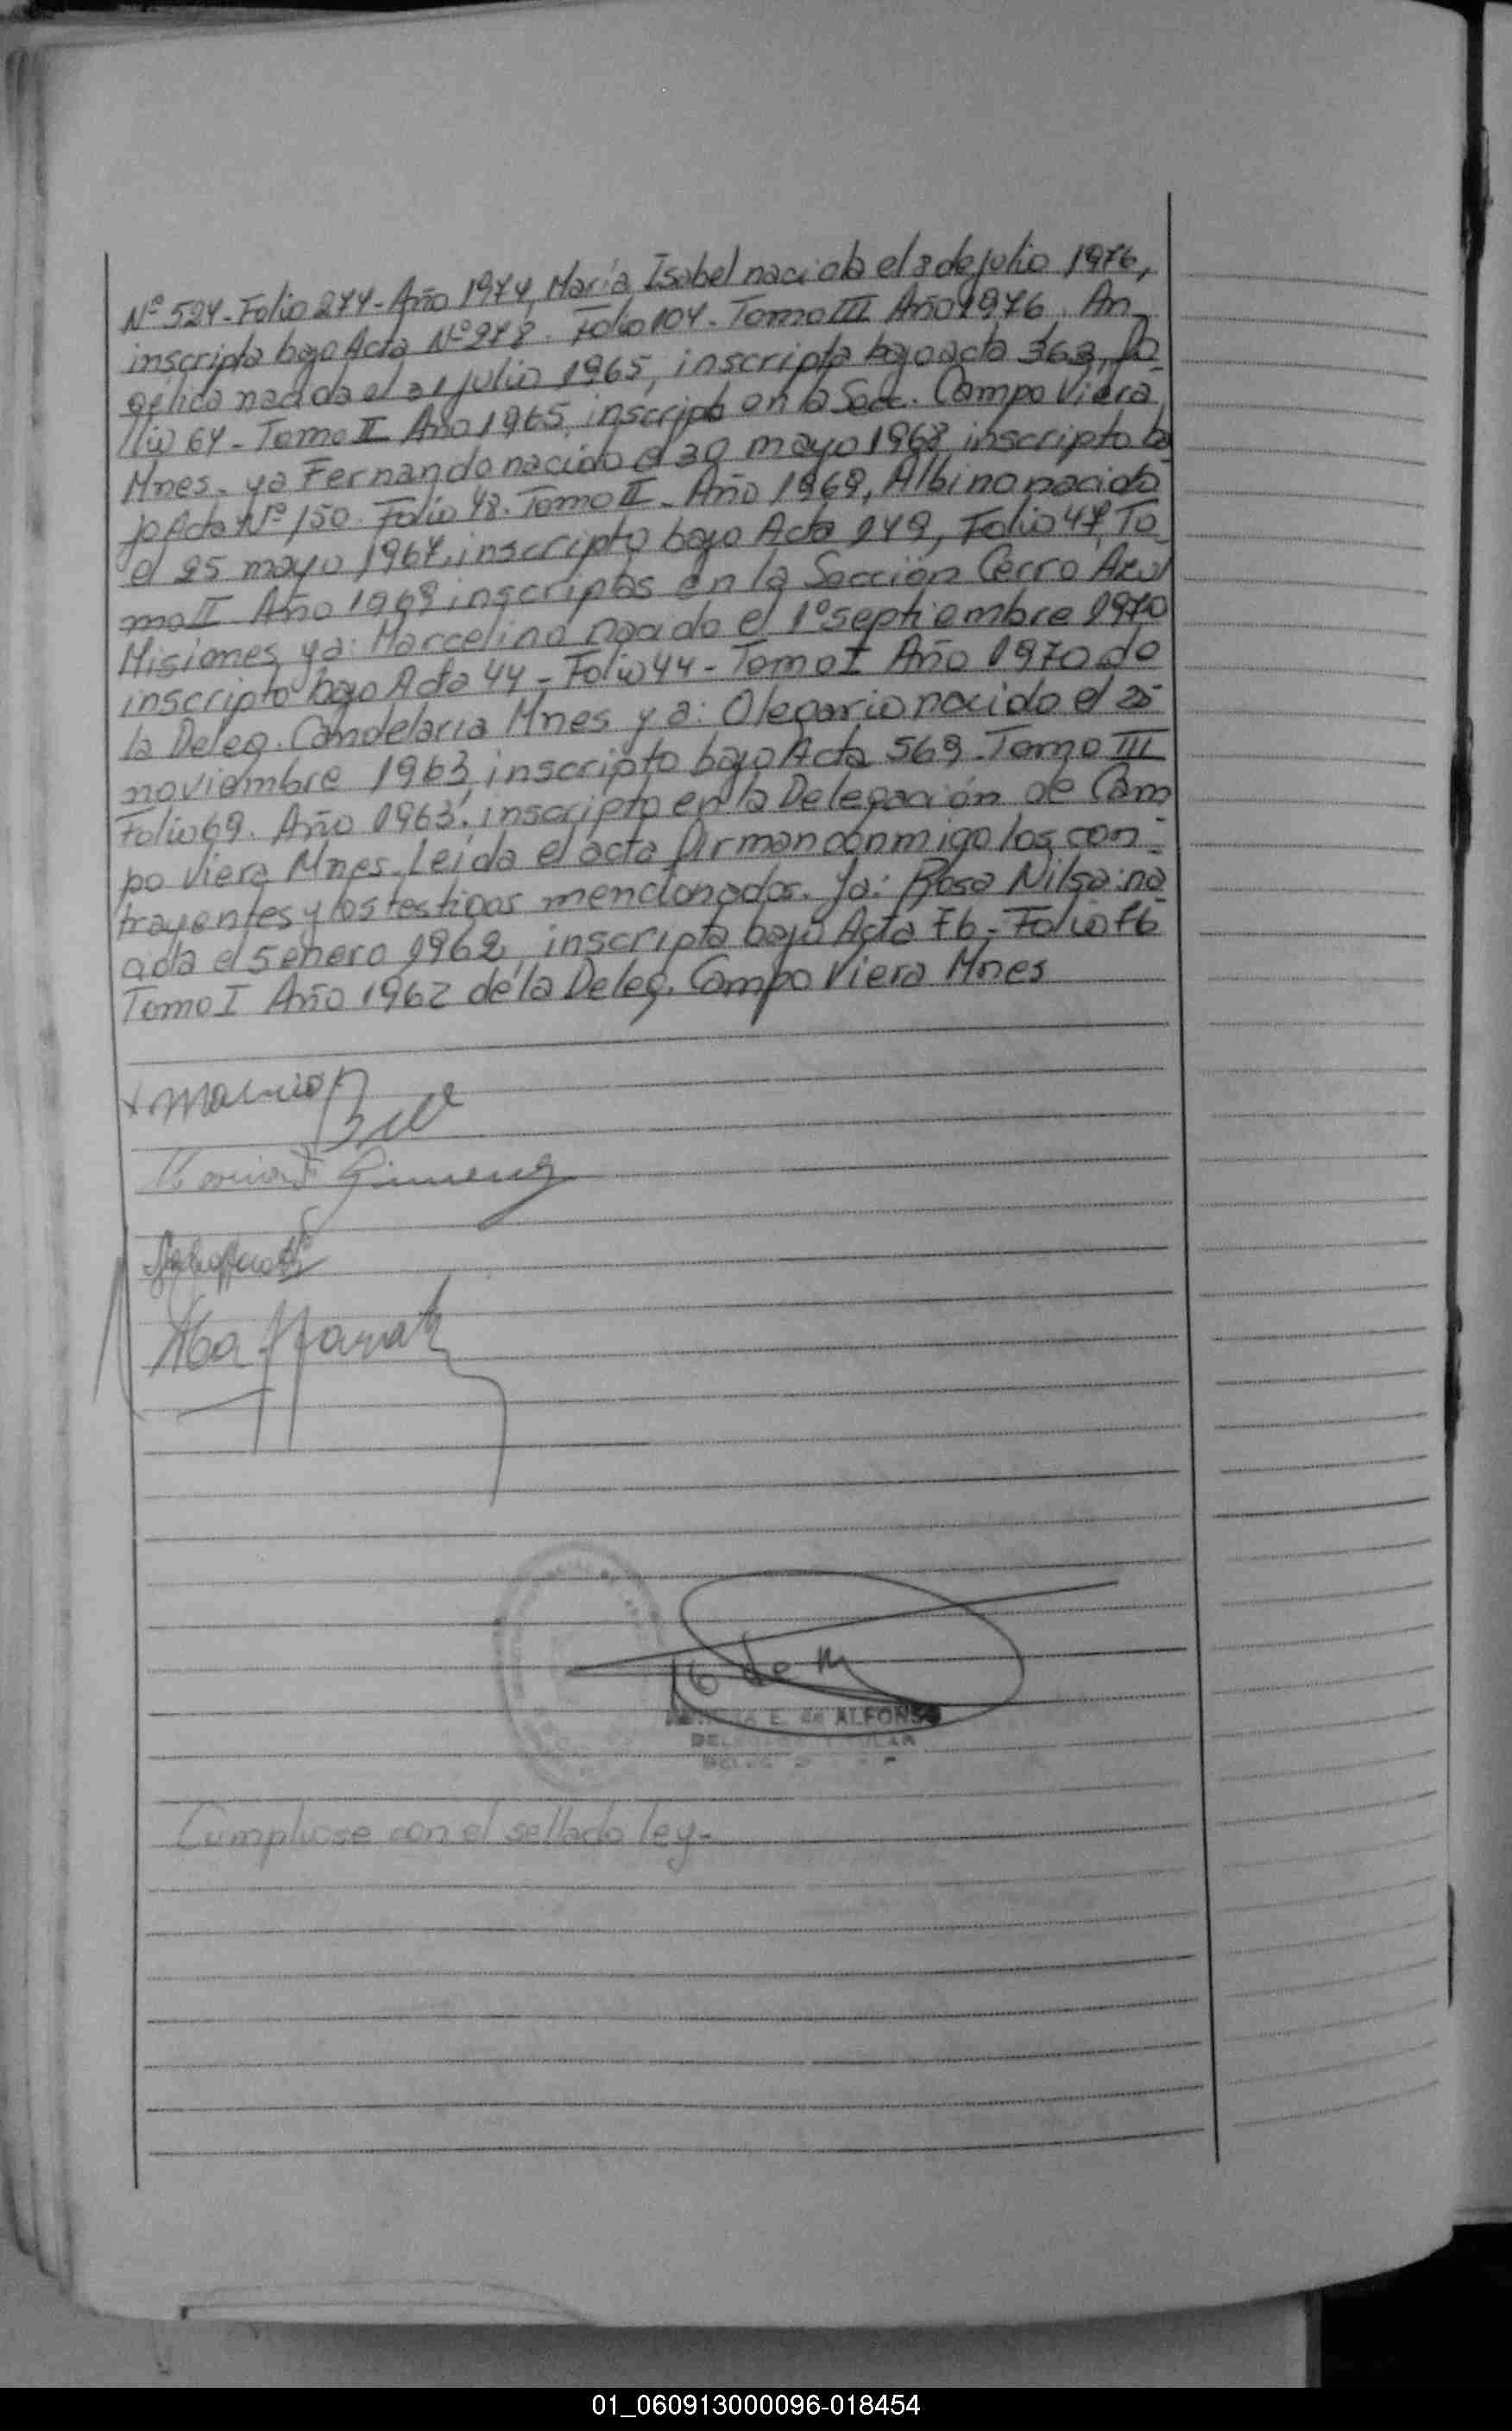 Nº 524-Folio 274-Año 1974, María Isabel nacida el 8 de julio 1976,
inscripta bajo Acta Nº 978. Folio 104-Tomo III Año 1976, An
gélica nacida el 21 julio 1965, inscripta bajo acta 363, fo
llio 64-Tomo II Año 1965, inscripta en la Secc. Campo Viera
Mnes. ya Fernando nacido el 30 mayo 1968 inscripto ba
jo Acta Nº 150. Folio 48. Tomo II-Año 1969, Albino nacido
el 25 mayo 1967, inscripto bajo Acta 149, Folio 47, To
mo II Año 1969 inscriptos en la Sección Cerro Azul
Misiones, ya: Marcelino nacido el 1º septiembre 1970
inscripto bajo Acta 44-Folio 44-Tomo I Año 1970 de
la Deleg. Candelaria Mnes y a: Olegario nacido el 25
noviembre 1963, inscripto bajo Acta 569. Tomo III
Folio 69. Año 1963. inscripto en la Delegación de Cam
po Viera Mnes. Leída el acta firman conmigo los con-
trayentes y los testigos mencionados. Ya: Rosa Nilsa: na
cida el 5 enero 1962, inscripta bajo Acta 76-Folio 76
Tomo I Año 1962 de la Deleg. Campo Viera Mnes
Gimenez
E. de ALFONSO
DELEGADO TITULAR
Cumpliose con el sellado ley-
01_060913000096-018454